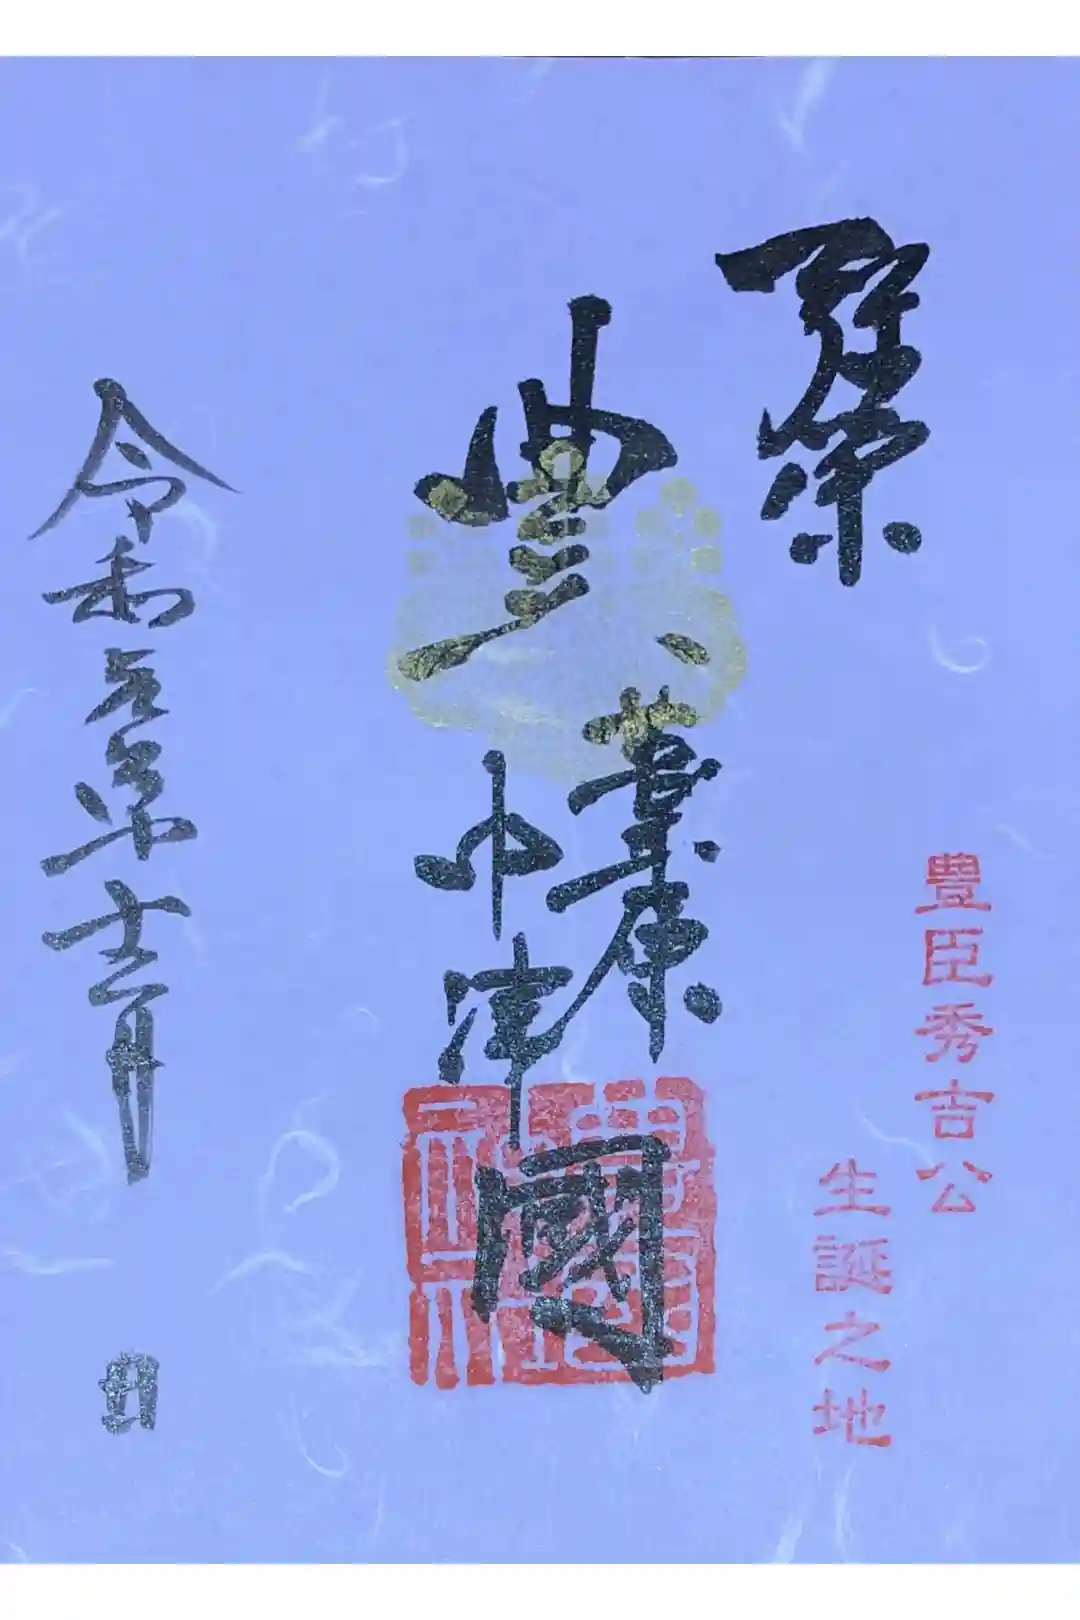 豊臣秀吉公
生誕之地
豊葦原
中津國
令和五年十二月 日